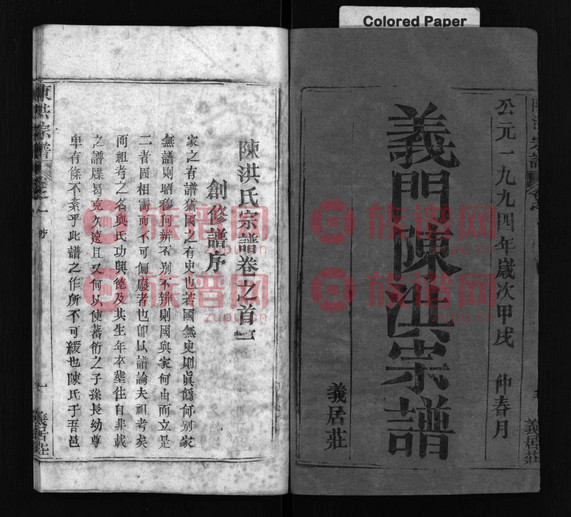 Colored Paper
公元一九九四年歲次甲戌 仲春月
義門陳洪宗譜
義居莊
陳洪氏宗譜卷之首一
創修譜序
家之有譜猶國之有史也若國無史則眞僞何別家
無譜則昭穆何辨不別不辨則國與家何由而立是
二者固相需而不可偏廢者也卽以譜論夫祖考矣
而祖考之名與氏功與德及其生年卒塟往自非載
之譜牒曷克久遠且又何以使蕃衍之子孫長幼尊
卑有條不紊乎此譜之作所不可緩也陳氏于吾邑
義居莊
族谱网